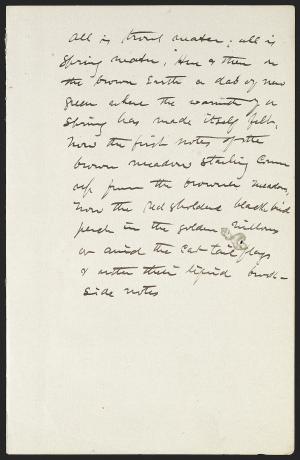 all is trout water; all is
Spring water; Here & there in
the brown Earth a dab of new
green where the warmth of
Spring has made itself felt,
Now the first notes of the
brown meadow starling Come
up from the browner meadow,
Now the red shoulderd black bird
perch in the golden willows
or amid the Cat tail flags
& utter their liquid brook-
side notes